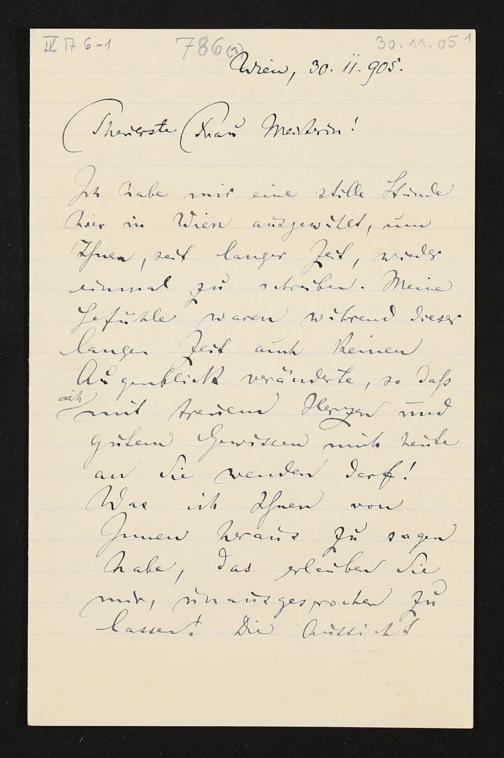 IV A 6-1 786(1) 30.11.05 1
Wien, 30. 11. 905.
Theuerste Frau Meisterin!
Ich habe mir eine stille Stunde
hier in Wien ausgewählt, um
Ihnen, seit langer Zeit, wieder
einmal zu schreiben. Meine
Gefühle waren während dieser
langen Zeit auch keinen
Augenblick veränderte, so daß
ich mit treuem Herzen und
gutem Gewissen mich heute
an Sie wenden darf!
Was ich Ihnen von
Innen heraus zu sagen
habe, das erlauben Sie
mir, unausgesprochen zu
lassen! Die Aussicht